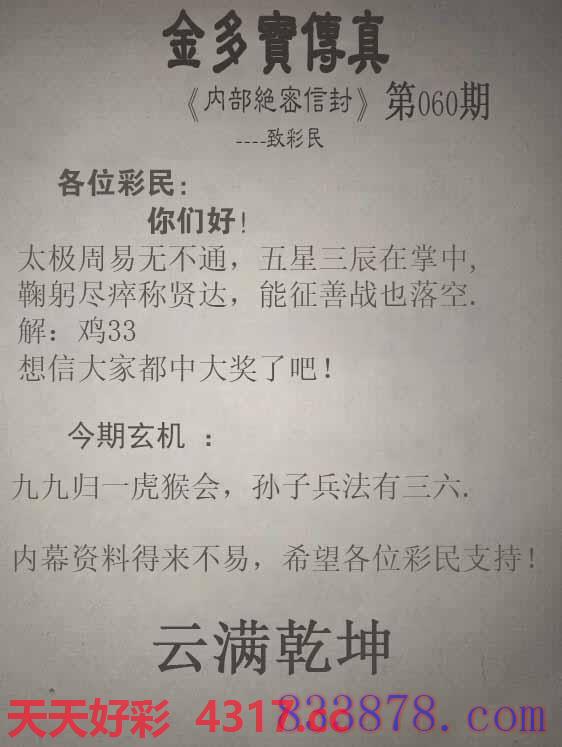 金多寶傳真
《内部絶密信封》第060期
----致彩民
各位彩民:
你们好!
太极周易无不通，五星三辰在掌中,
鞠躬尽瘁称贤达，能征善战也落空.
解：鸡33
想信大家都中大奖了吧!
今期玄机 ：
九九归一虎猴会，孙子兵法有三六.
内幕资料得来不易，希望各位彩民支持!
云满乾坤
天天好彩 4317.cc 833878.com